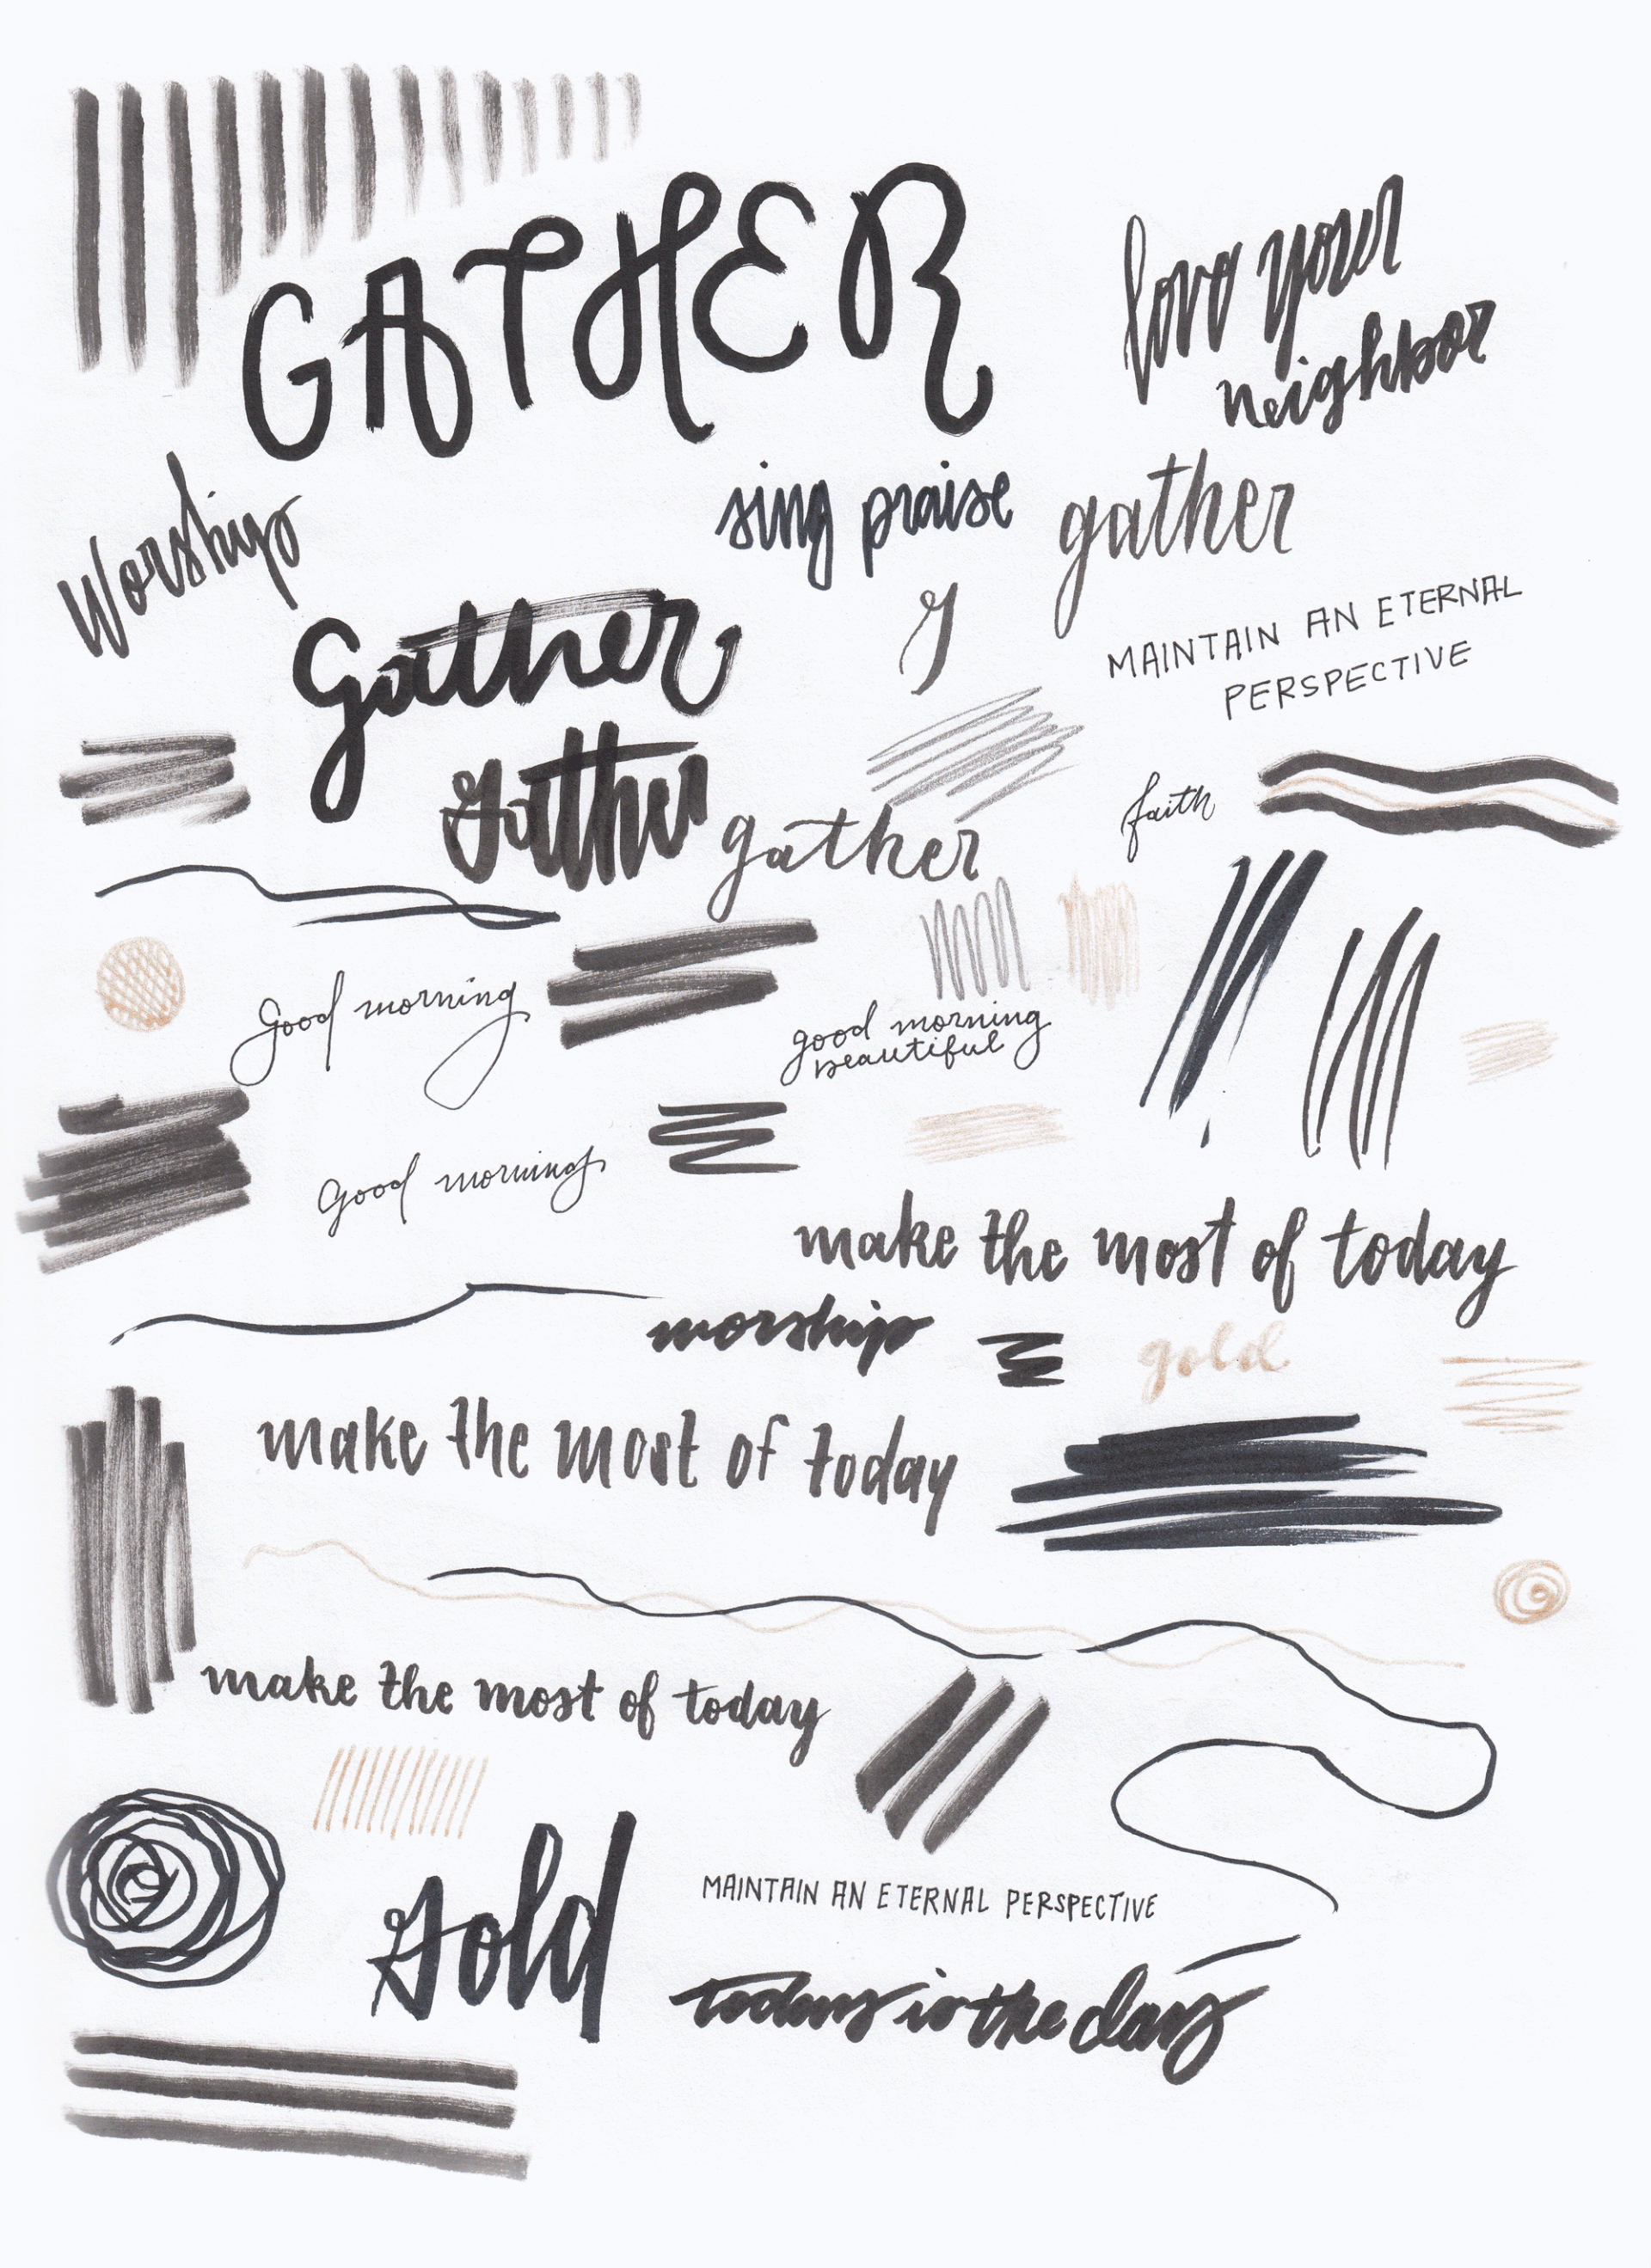 GATHER
love your
neighbor
Worship
sing praise
gather
Gather
g
MAINTAIN AN ETERNAL
PERSPECTIVE
Gather
gather
faith
Good morning
good morning
beautiful
Good morning
make the most of today
worship
gold
make the most of today
make the most of today
Gold
MAINTAIN AN ETERNAL PERSPECTIVE
today is the day